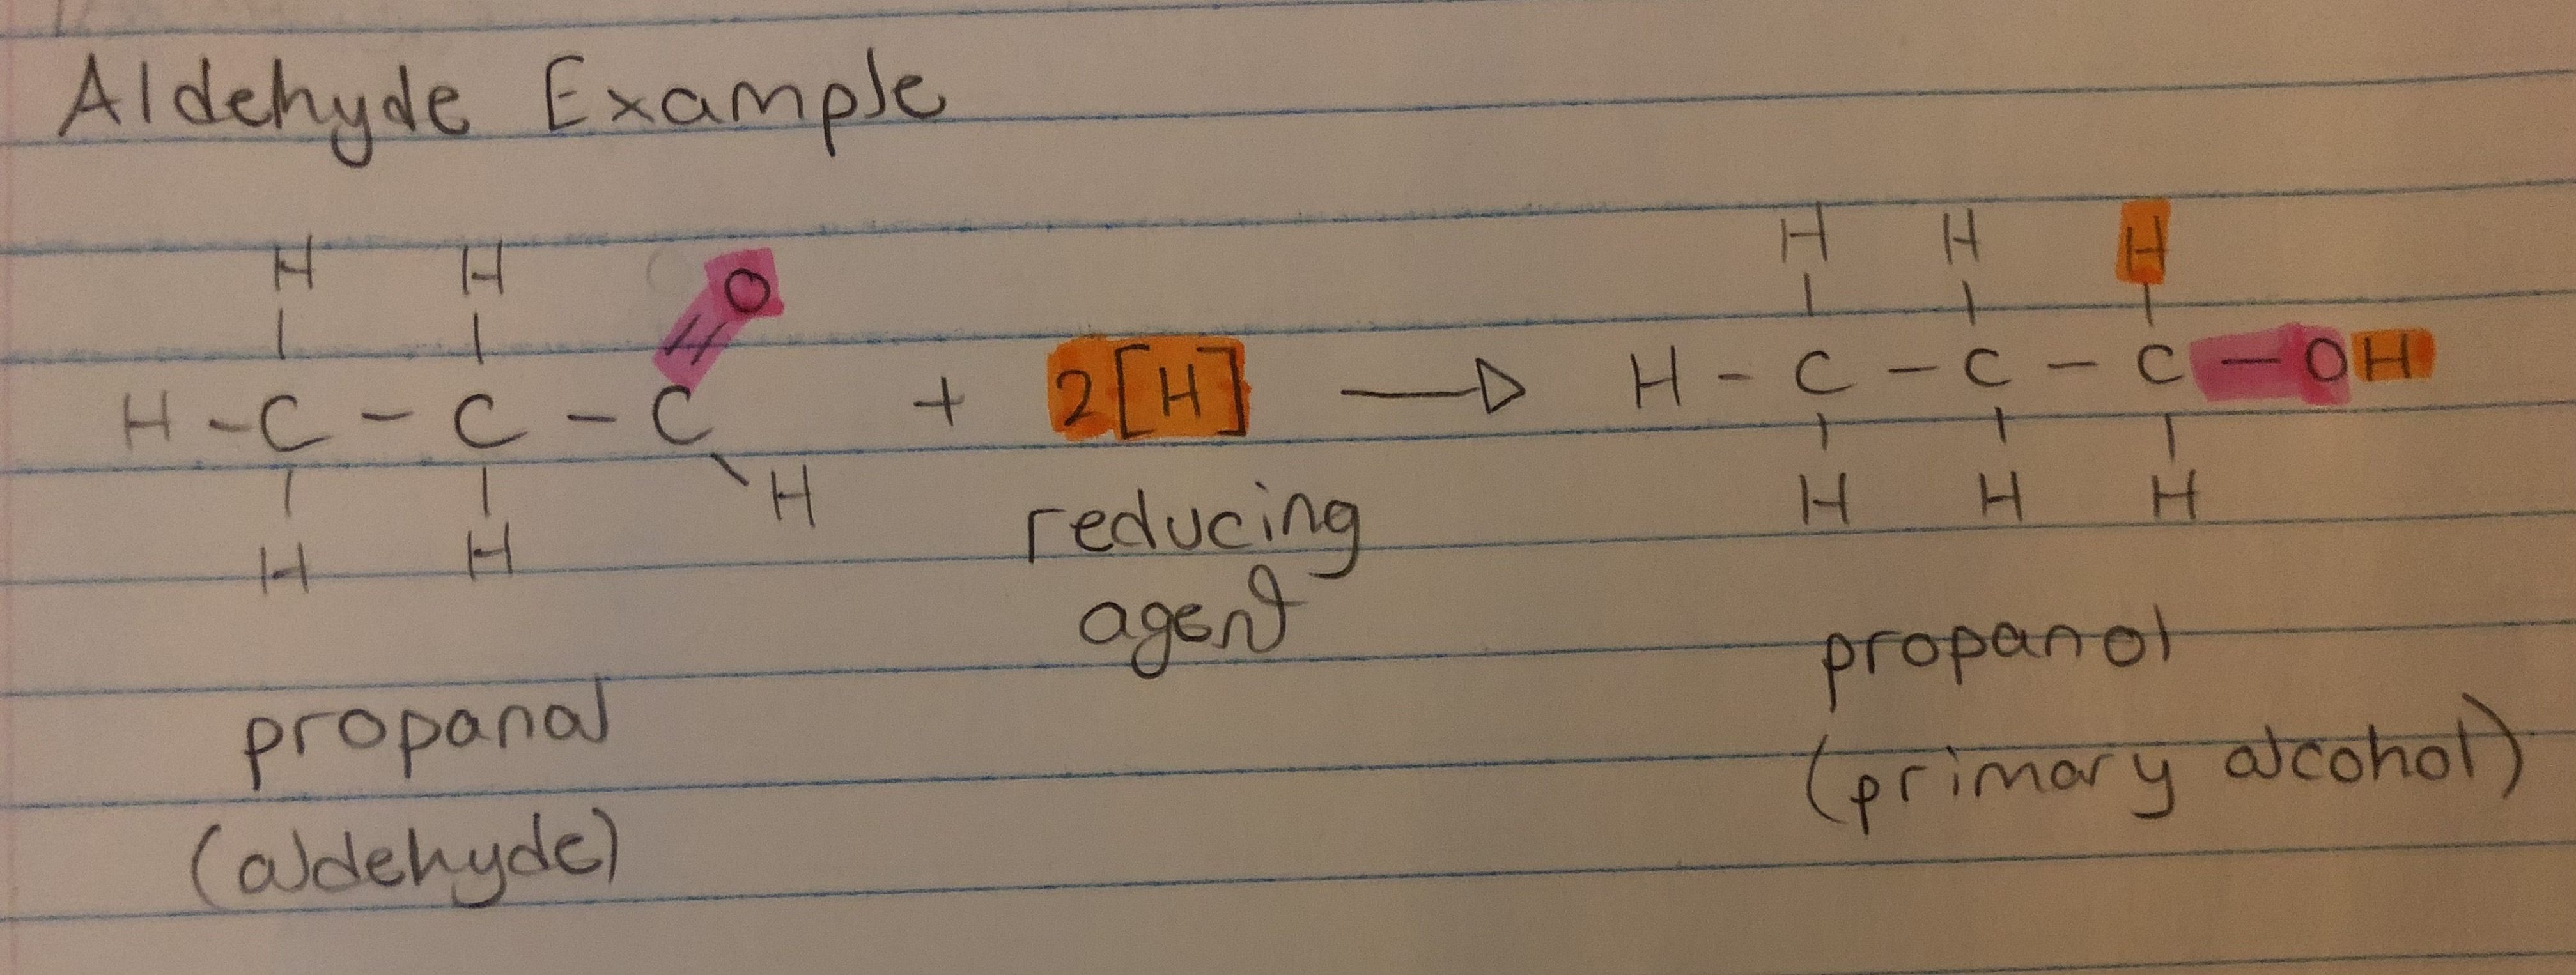 Aldehyde Example
H H O H H H
H - C - C - C + 2[H] → H - C - C - C - OH
H H H H H H
reducing
agent
propanal
(aldehyde)
propanol
(primary alcohol)